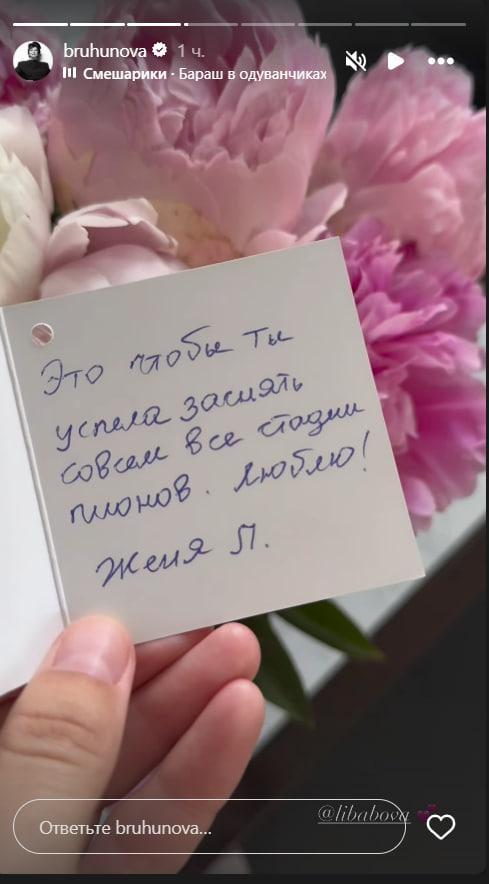 bruhunova 1 ч.
Смешарики · Бараш в одуванчиках
Это чтобы ты
успела заснять
совсем все стадии
пионов. Люблю!
Женя Л.
@libabova
Ответьте bruhunova...